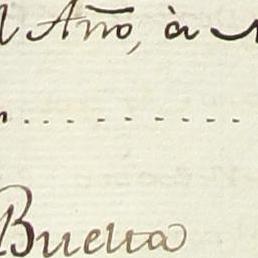 l Año, à
. . . . . . . . . .
Buena